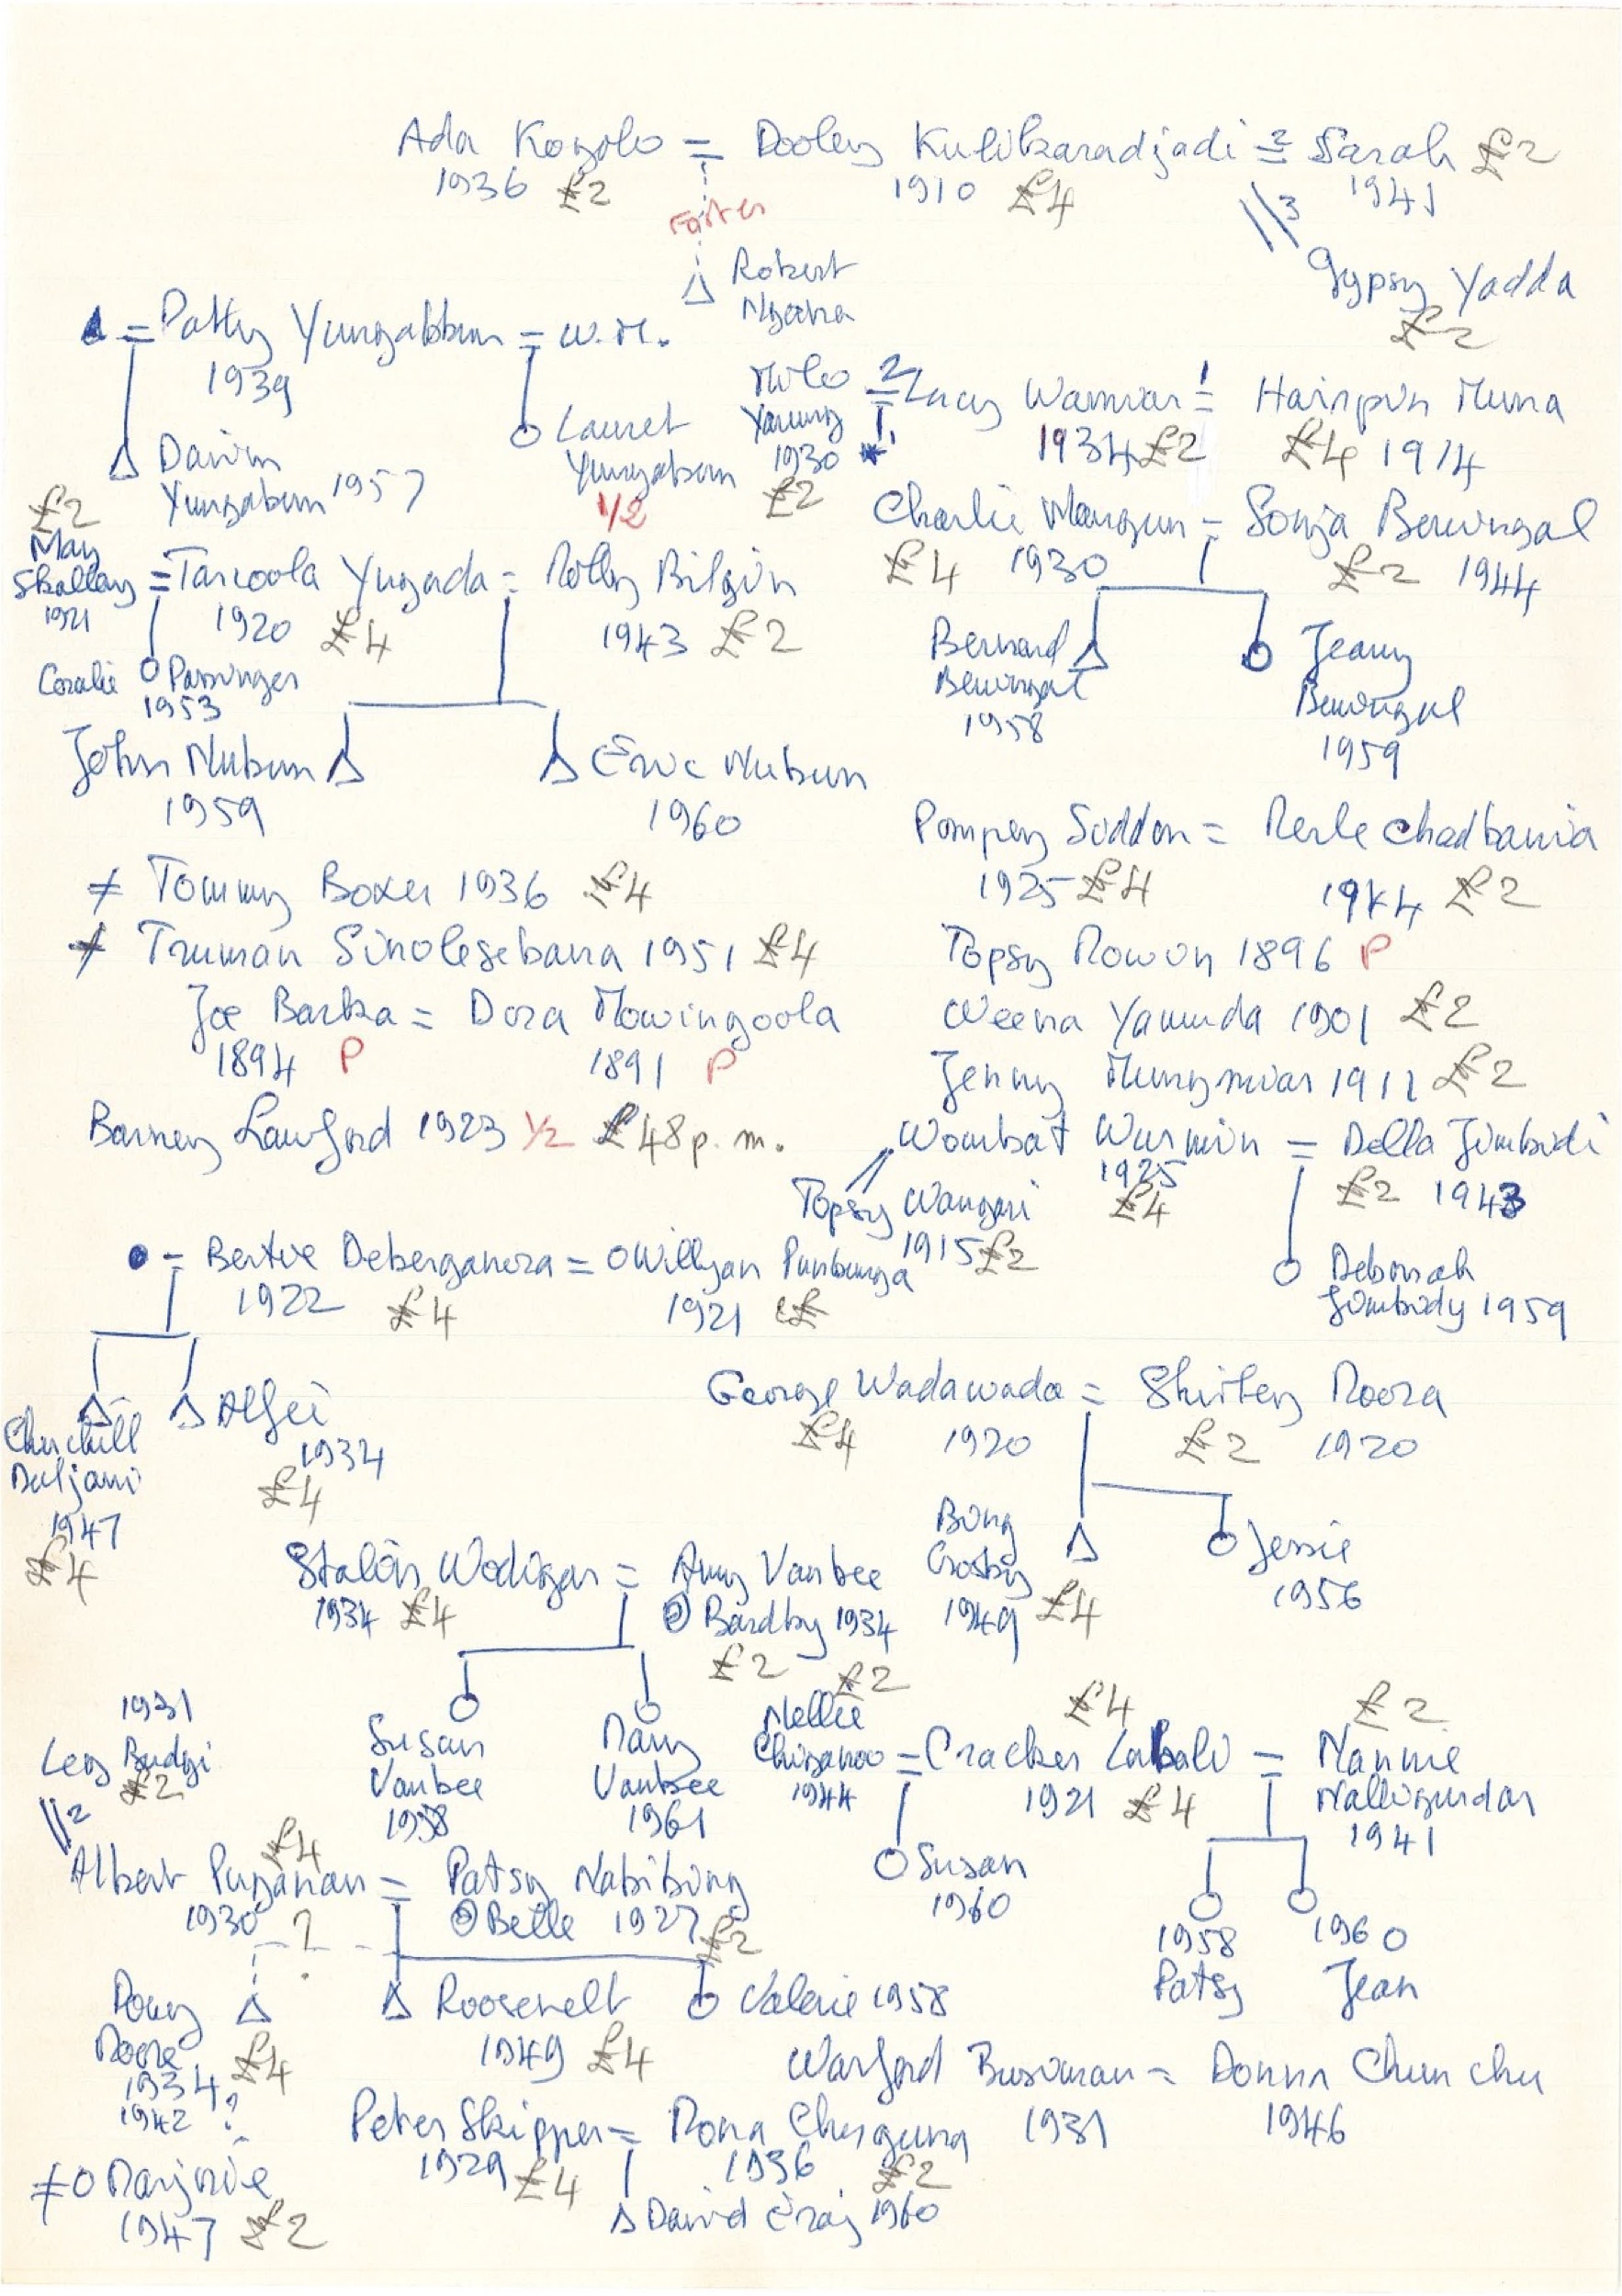 Ada Kogolo = Dooley Kulikaradjadi =2 Sarah £2
1936 £2 1910 £4 1941
Foster //3
Robert Gypsy Yadda
£2
= Patty Yungabbun = W.M.
1939
Milo =2 Lucy Wamiar =1 Hairpin Muna
1930 £2 * 1934 £2 £4 1914
Laurel
Yungabun
1/2
Yungabun 1957
Charlie Mangun = Sonja Bewingal
£4 1930 £2 1944
£2
May
Skallary = Tarcoola Yugada = Polly Bilgin
1921 1920 £4 1943 £2
Bernard Jeany
Bewingal Bewingal
1958 1959
Coralie Passinger
1953
John Nubun Eric Nubun
1959 1960
Pompey Siddon = Merle Chadbania
1925 £4 1944 £2
≠ Tommy Boxer 1936 £4
≠ Truman Sinolesebana 1951 £4
Topsy Rowon 1896 P
Joe Barka = Dora Mowingoola
1894 P 1891 P
Weena Yamuda 1901 £2
Jenny 1911 £2
Barney Lawford 1923 1/2 £48 p.m.
Wombat Wurmin = Della Jimbidi
1925 £4 £2 1943
Topsy Wangari
1915 £2
Deborah
Jimbidy 1959
= Bertie Deberganora = Willyan Punbunga
1922 £4 1921 £
Churchill Alfei
Duljani 1934
1947 £4
£4
George Wadawada = Shirley Roora
£4 1920 £2 1920
Bing
Crosby
1949 £4
Jessie
1956
Stalin Wodigan = Amy Vanbee
1934 £4 Bardby 1934
£2
Susan Mary
Vanbee Vanbee
1958 1961
£2 £4 £2
Nellie
Chiganoo = Cracker Labali = Nannie
1944 1921 £4 Nalligundar
1941
Susan
1960
1958 1960
Patsy Jean
1931
Leg Budgi
£2
//2
£4
Albert Puganan = Patsy Nabibing
1930 Belle 1927 £2
?
Roosevelt Valerie 1958
1949 £4
Moore £4
1934
1942 ?
Warford Businan = Donna Chunchu
1931 1946
Peter Skipper = Mona Chuguna
1929 £4 1936 £2
David Craig 1960
≠ O Marjorie
1947 £2